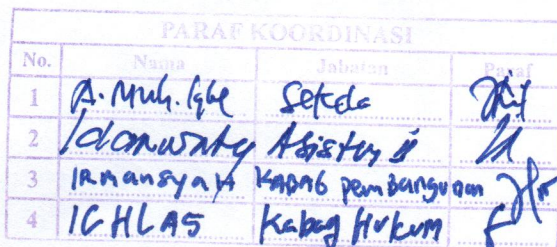 PARAF KOORDINASI
No. Nama Jabatan Paraf
1 A. Muh. Iqbl Sekda
2 Asisten
3 IRMANSYAH KABAG pembangunan
4 ICHLAS Kabag Hukum